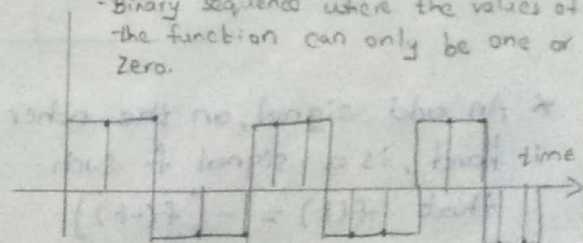 - Binary sequence where the values of
the function can only be one or
zero.
time